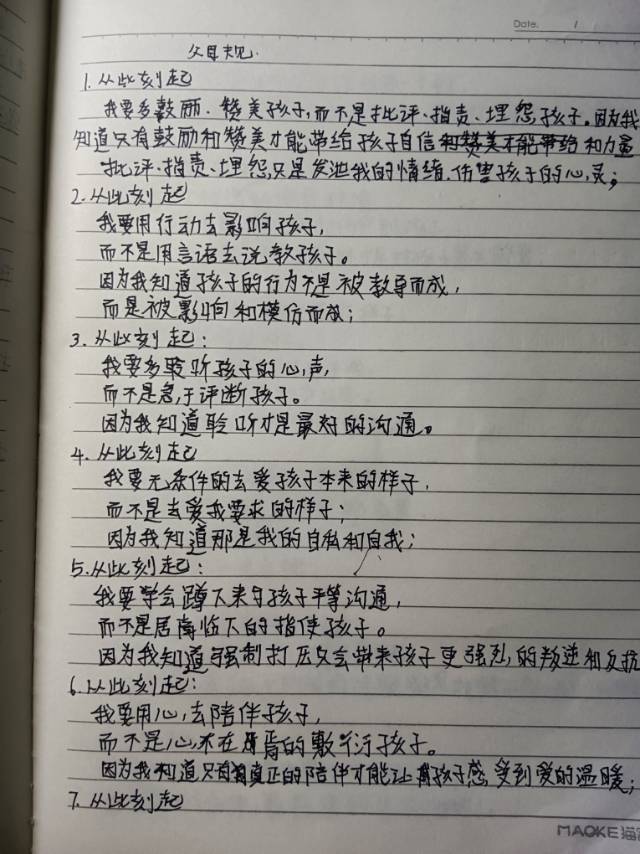 Date. /
父母规.
1. 从此刻起
我要多鼓励、赞美孩子,而不是批评、指责、埋怨孩子。因为我
知道只有鼓励和赞美才能带给孩子自信和赞美不能带给和力量
批评、指责、埋怨,只是发泄我的情绪.伤害孩子的心灵;
2. 从此刻起
我要用行动去影响孩子,
而不是用言语去说教孩子。
因为我知道孩子的行为不是被教导而成,
而是被影响和模仿而成;
3. 从此刻起:
我要多聆听孩子的心声,
而不是急于评断孩子。
因为我知道聆听才是最好的沟通。
4. 从此刻起
我要无条件的去爱孩子本来的样子,
而不是去爱我要求的样子;
因为我知道那是我的自私和自我;
5. 从此刻起:
我要学会蹲下来与孩子平等沟通,
而不是居高临下的指使孩子。
因为我知道强制打压只会带来孩子更强烈的叛逆和反抗
6. 从此刻起:
我要用心去陪伴孩子,
而不是心不在焉的敷衍孩子。
因为我知道只有真正的陪伴才能让孩子感受到爱的温暖;
7. 从此刻起
MAOKE猫